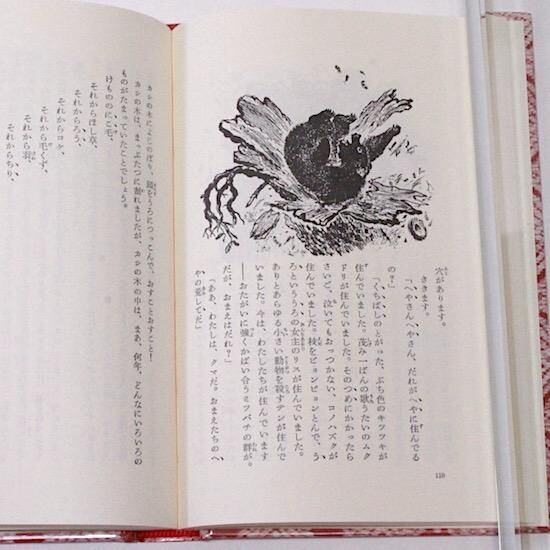 穴があります。
ききます。
「へやさんへやさん、だれがへやに住んでる
の？」
「くちばしのとがった、ぶち色のキツツキが
住んでいました。茂み一ばんの歌うたいのムク
ドリが住んでいました。そのつめにかかったら
さいご、泣いてもおっつかない、コノハズクが
住んでいました。枝をピョンピョンとんで、う
ろというろの女主のリスが住んでいました。
ありとあらゆる小さい動物を殺すテンが住んで
いました。今は、わたしたちが住んでいます
——おたがいに強くかばい合うミツバチの群が。
だが、おまえはだれ？」
「ああ、わたしは、クマだ。おまえたちのへ
やの愛してだ」
110
カシの木によじのぼり、頭をうろにつっこんで、おすことおすこと！
カシの木は、まっぷたつに割れましたが、カシの木の中は、まあ、何年、どんなにいろいろの
ものがたまっていたことでしょう。
けもののにこ毛、
それからほし草、
それからろう、
それからコケ、
それから毛くず、
それから羽、
それからちり、